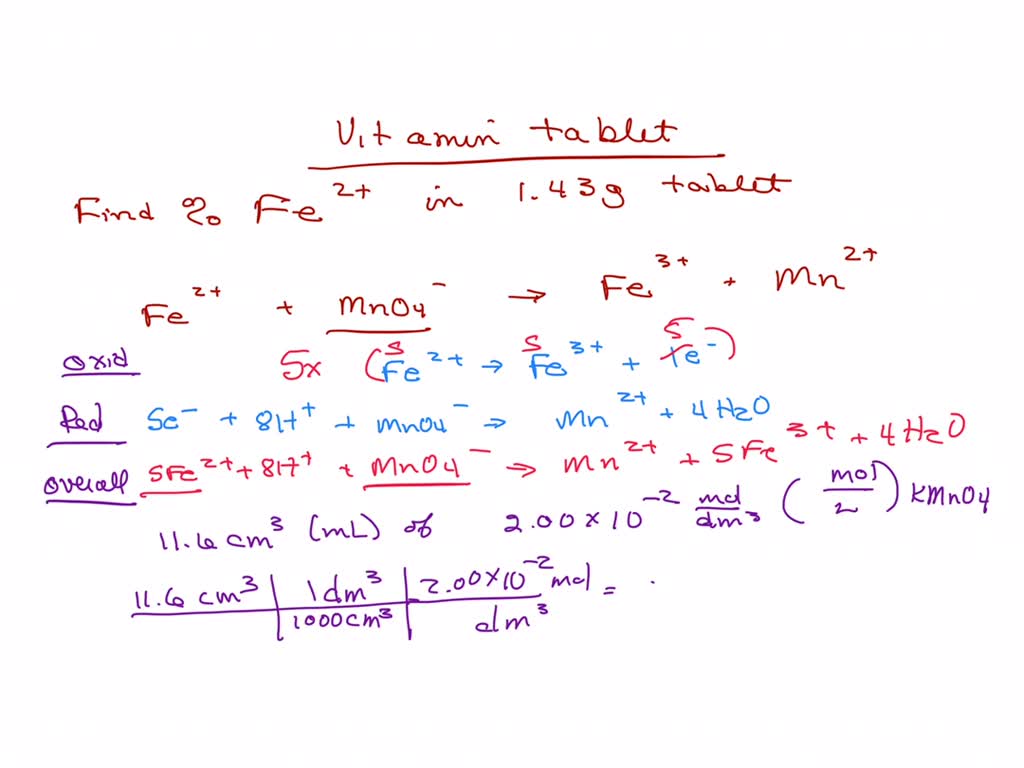 Vitamin tablet
Find % Fe²⁺ in 1.43g tablet
Fe²⁺ + MnO4⁻ → Fe³⁺ + Mn²⁺
Oxid 5x (5Fe²⁺ → 5Fe³⁺ + 5e⁻)
Red 5e⁻ + 8H⁺ + MnO4⁻ → Mn²⁺ + 4H2O
Overall 5Fe²⁺ + 8H⁺ + MnO4⁻ → Mn²⁺ + 5Fe³⁺ + 4H2O
11.6 cm³ (mL) of 2.00 × 10⁻² mol/dm³ (mol/L) KMnO4
11.6 cm³ | 1 dm³ | 2.00×10⁻² mol =
1000cm³ | dm³